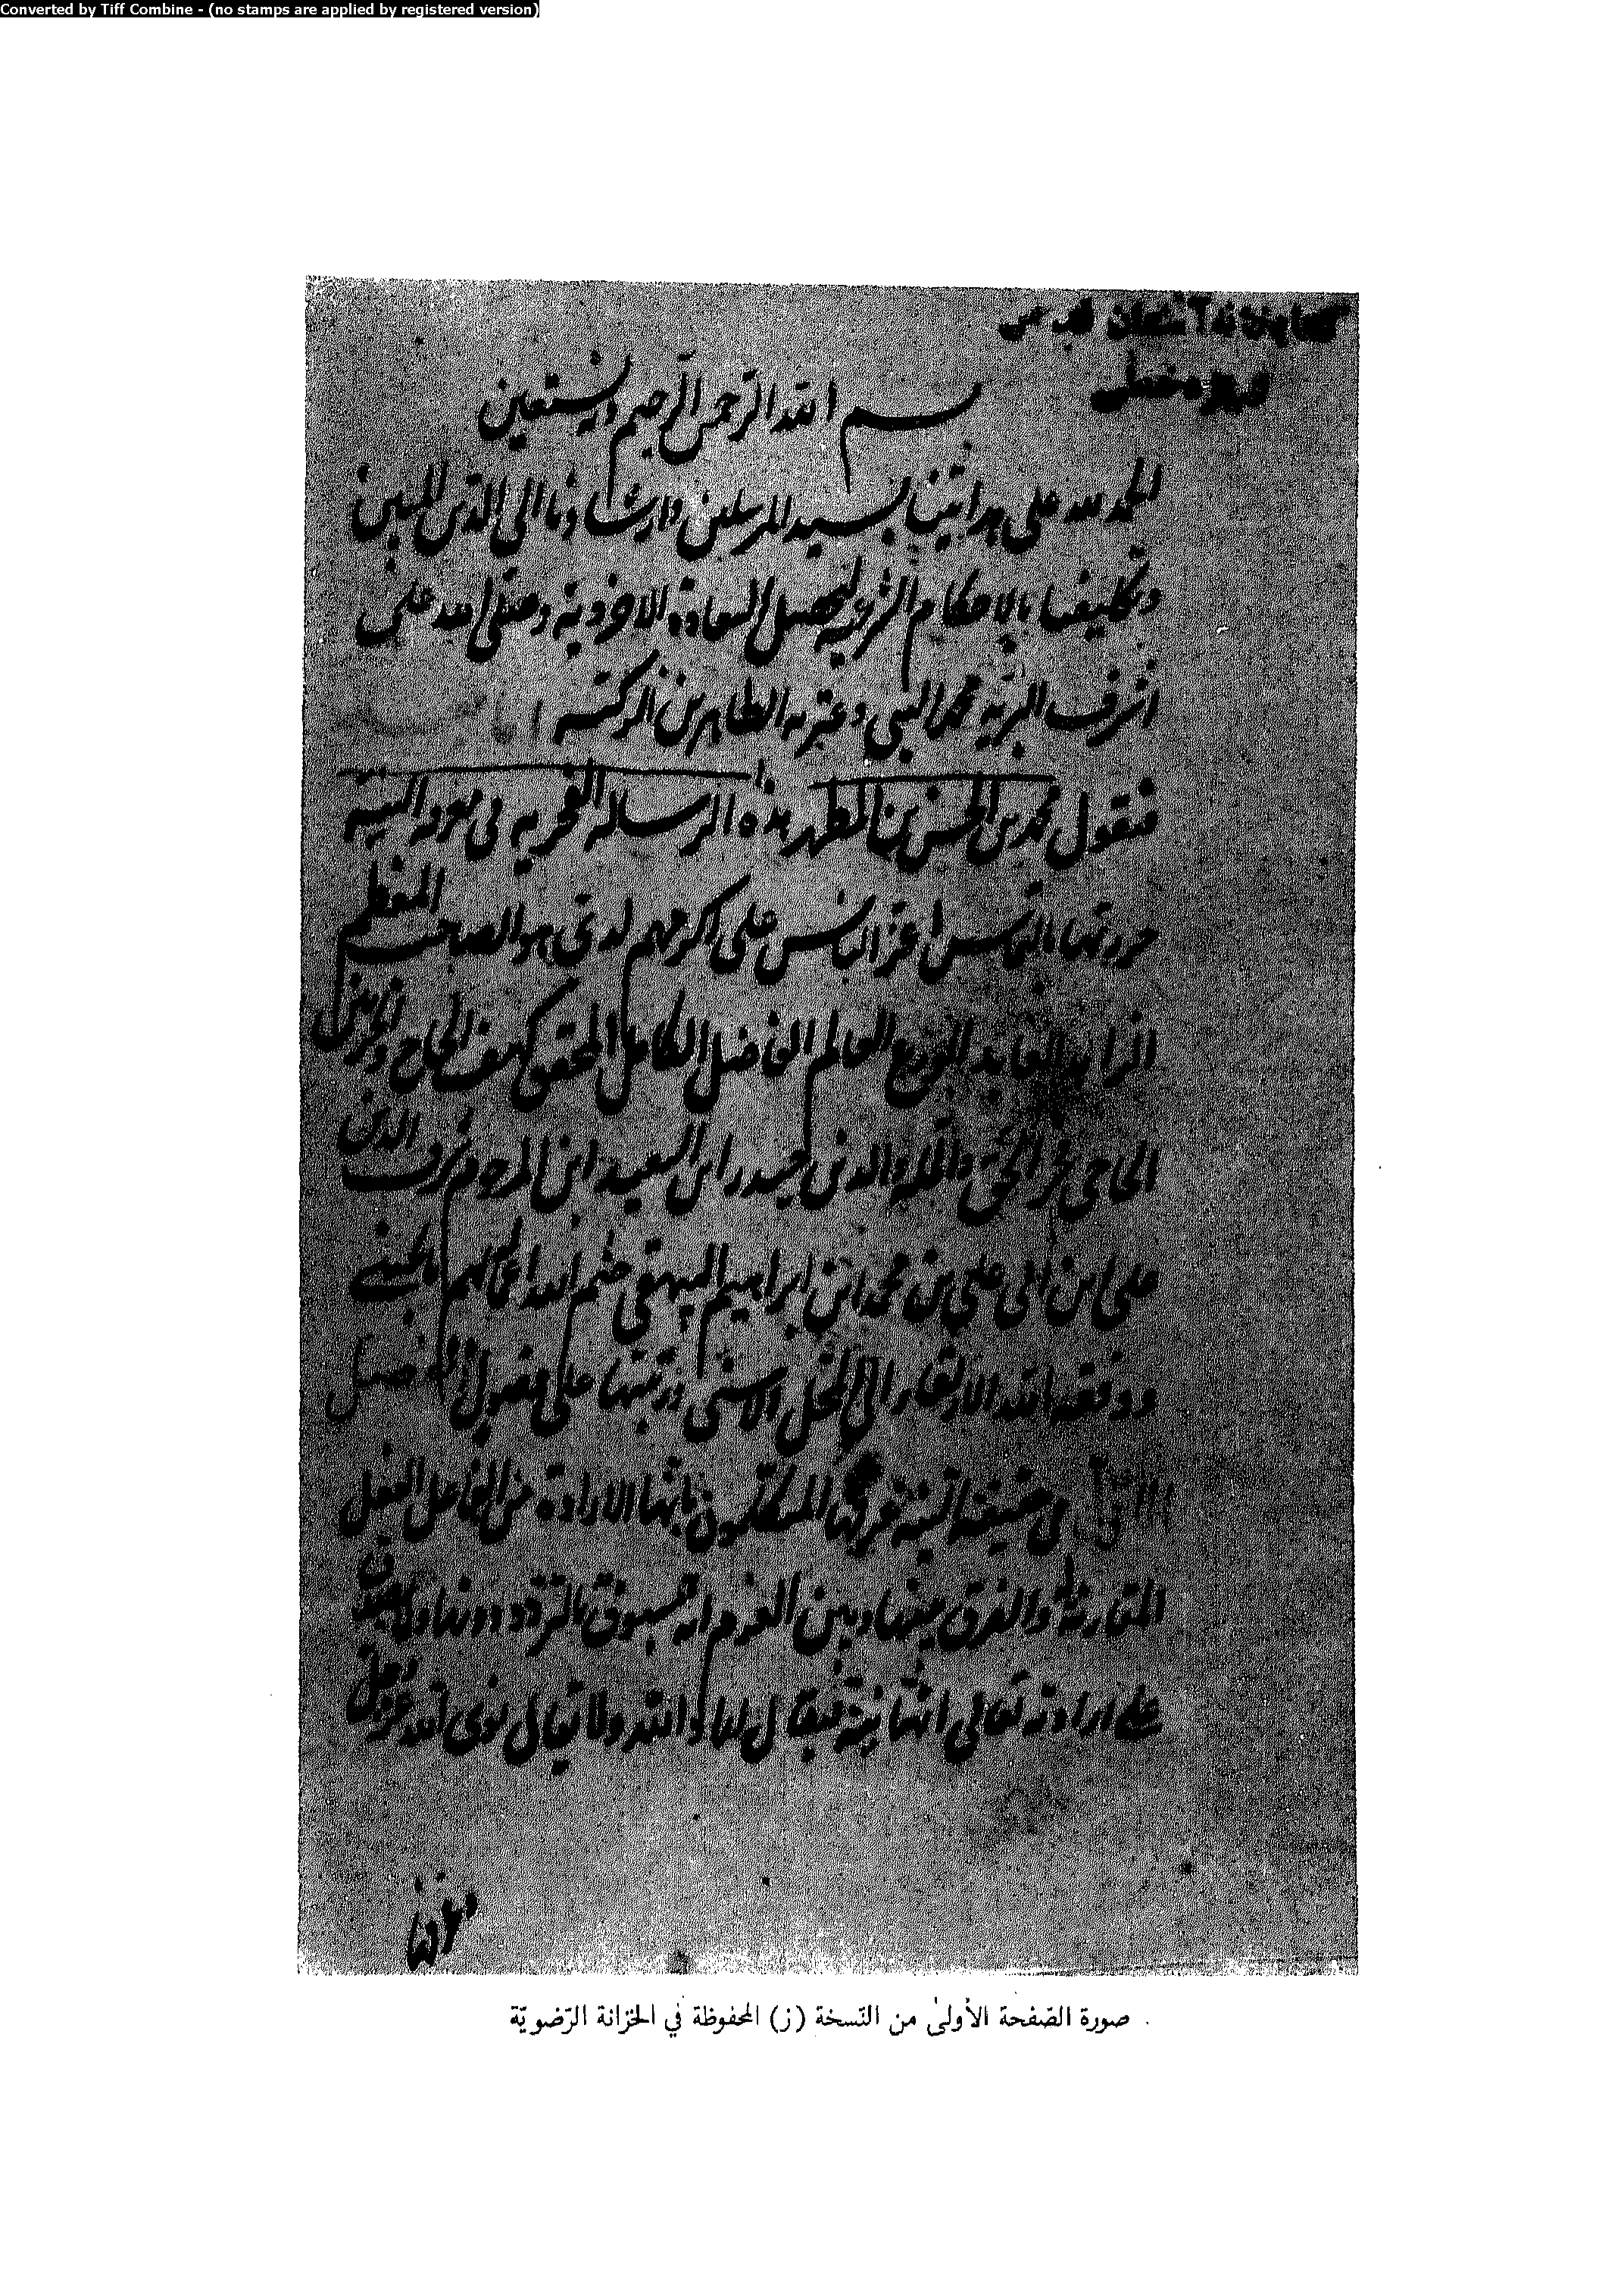 Converted by Tiff Combine - (no stamps are applied by registered version)
كتابخانه آستان قدس
بسم الله الرحمن الرحيم وبه نستعين
الحمد لله على هدايتنا بسيد المرسلين وارشادنا الى الدين المبين
وتكليفنا بالاحكام الشرعية لتحصيل السعادة الاخروية وصلى الله على
اشرف البرية محمد النبي وعترته الطاهرين الزكية اما
فيقول محمد بن الحسن بن المطهر هذه الرسالة الفخرية في معرفة النية
حررتها بالتماس اعز الناس علي واكرمهم لدي هو الصاحب المعظم
الزاهد العابد الورع العالم الفاضل الكامل المحقق كهف الحاج
الحاجي فخر الحق والملة والدين حيدر ابن السعيد ابن المرحوم شرف الدين
على ابن ابى على بن محمد ابن ابراهيم البيهقي ختم الله اعمالهم بالحسنى
ووفقه الله الارتقاء الى المحل الاسنى ورتبتها على فصول الفصل
الاول في حقيقة النية عرفها المتكلمون بانها الارادة من الفاعل للفعل
المقارنة له والفرق بينها وبين العزم انه مسبوق بالتردد دونها ولا يصدق
على ارادة الله تعالى انها نية فيقال اراد الله ولا يقال نوى الله عز وجل
صورة الصّفحة الأولىٰ من النّسخة (ز) المحفوظة في الخزانة الرّضويّة .